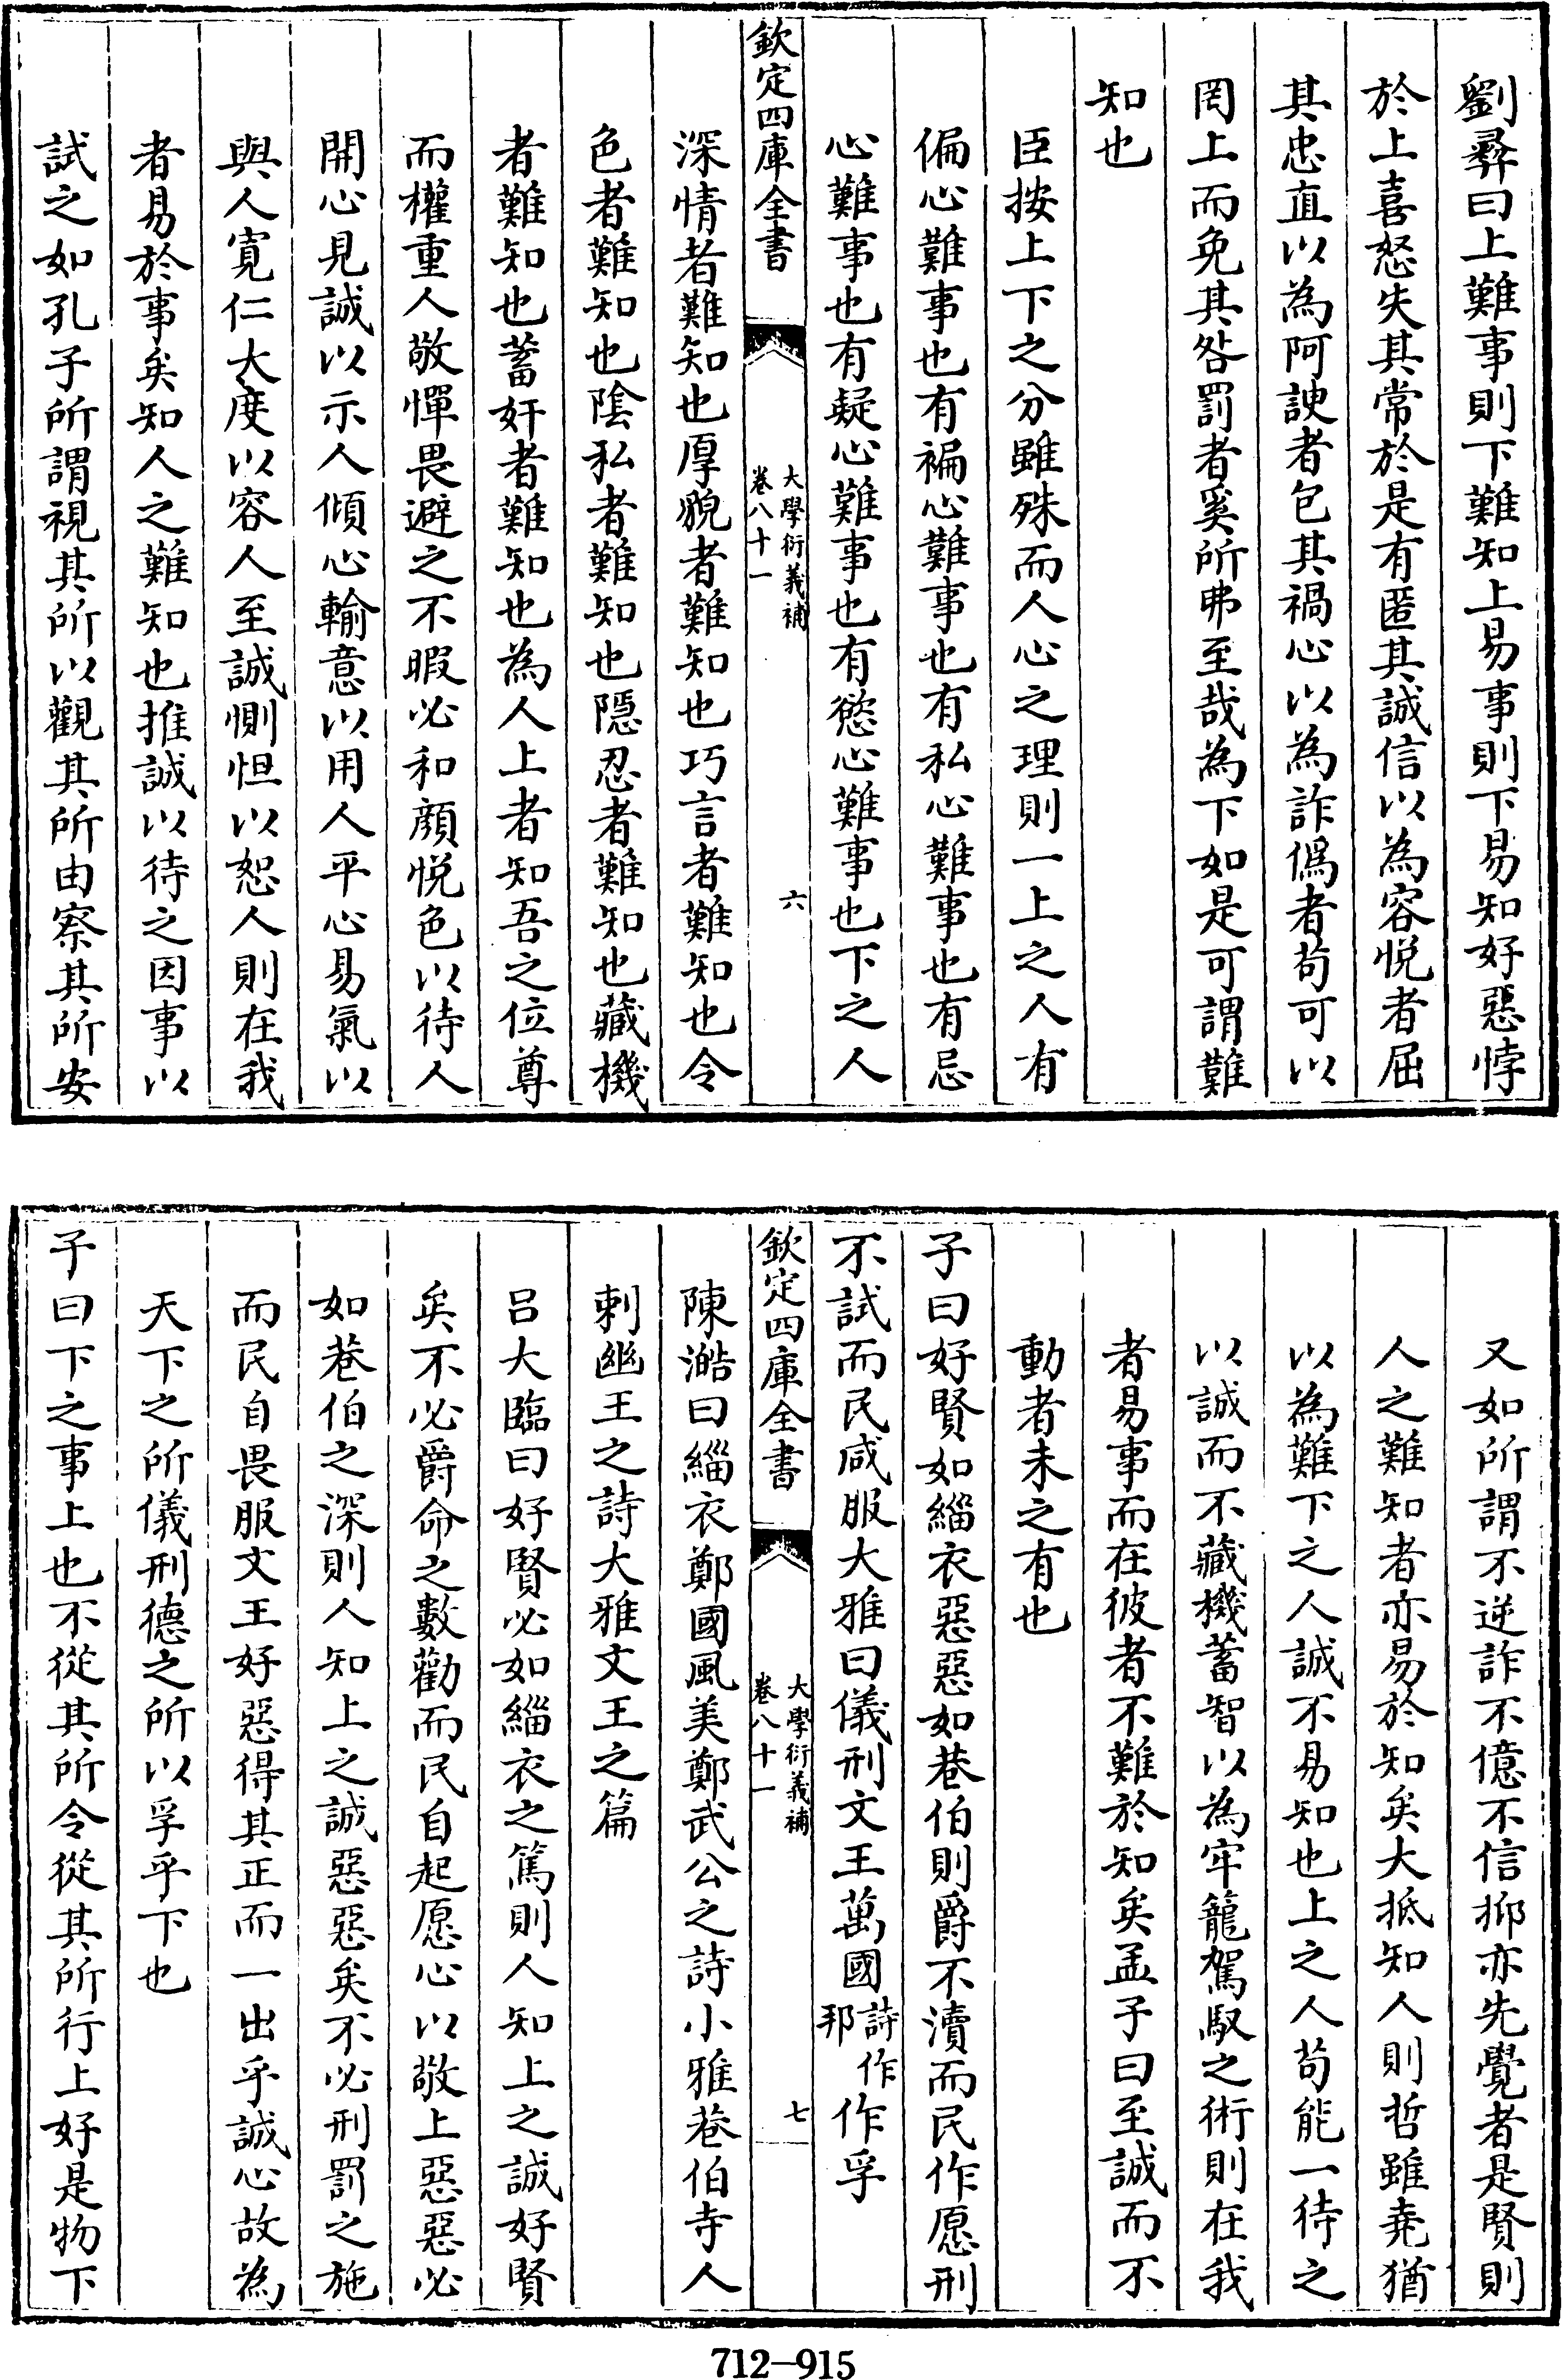 劉彞曰上難事則下難知上易事則下易知好惡悖
於上喜怒失其常於是有匿其誠信以為容悅者屈
其忠直以為阿諛者包其禍心以為詐僞者茍可以
罔上而免其咎罰者奚所弗至哉為下如是可謂難
知也
臣按上下之分雖殊而人心之理則一上之人有
偏心難事也有褊心難事也有私心難事也有忌
心難事也有疑心難事也有慾心難事也下之人
欽定四庫全書
大學衍義補
卷八十一
六
深情者難知也厚貌者難知也巧言者難知也令
色者難知也隂私者難知也隱忍者難知也藏機
者難知也蓄奸者難知也為人上者知吾之位尊
而權重人敬憚畏避之不暇必和顔悅色以待人
開心見誠以示人傾心輸意以用人平心易氣以
與人寛仁大度以容人至誠惻怛以恕人則在我
者易於事矣知人之難知也推誠以待之因事以
試之如孔子所謂視其所以觀其所由察其所安
又如所謂不逆詐不億不信抑亦先覺者是賢則
人之難知者亦易於知矣大抵知人則哲雖堯猶
以為難下之人誠不易知也上之人茍能一待之
以誠而不藏機蓄智以為牢籠駕馭之術則在我
者易事而在彼者不難於知矣孟子曰至誠而不
動者未之有也
子曰好賢如緇衣惡惡如巷伯則爵不瀆而民作愿刑
不試而民咸服大雅曰儀刑文王萬國詩作邦作孚
欽定四庫全書
大學衍義補
卷八十一
七
陳澔曰緇衣鄭國風美鄭武公之詩小雅巷伯寺人
刺幽王之詩大雅文王之篇
呂大臨曰好賢必如緇衣之篤則人知上之誠好賢
矣不必爵命之數勸而民自起愿心以敬上惡惡必
如巷伯之深則人知上之誠惡惡矣不必刑罰之施
而民自畏服文王好惡得其正而一出乎誠心故為
天下之所儀刑德之所以孚乎下也
子曰下之事上也不從其所令從其所行上好是物下
712-915